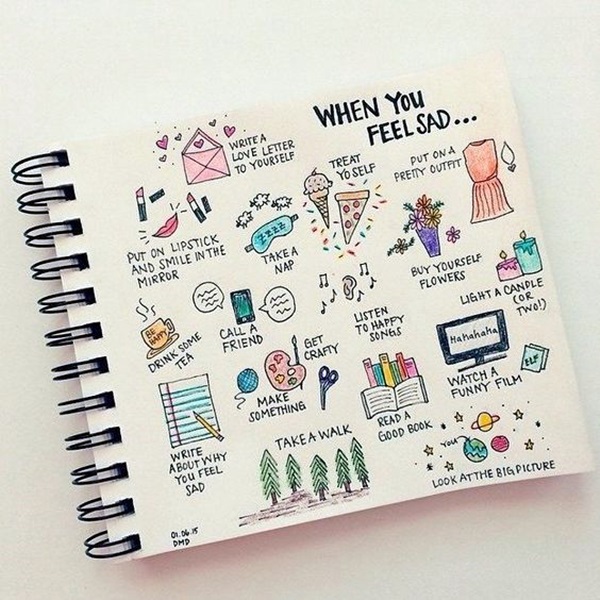 WHEN YOU
FEEL SAD...
WRITE A
LOVE LETTER
TO YOURSELF
TREAT
YO SELF
PUT ON A
PRETTY OUTFIT
PUT ON LIPSTICK
AND SMILE IN THE
MIRROR
ZZZZ
TAKE A
NAP
BUY YOURSELF
FLOWERS
LIGHT A CANDLE
(OR
TWO!)
BE
HAPPY
DRINK SOME
TEA
CALL A
FRIEND
LISTEN
TO HAPPY
SONGS
Hahahaha
ELF
WATCH A
FUNNY FILM
GET
CRAFTY
MAKE
SOMETHING
READ A
GOOD BOOK
WRITE
ABOUT WHY
YOU FEEL
SAD
TAKE A WALK
YOU
LOOK AT THE BIG PICTURE
01.06.15
DMD